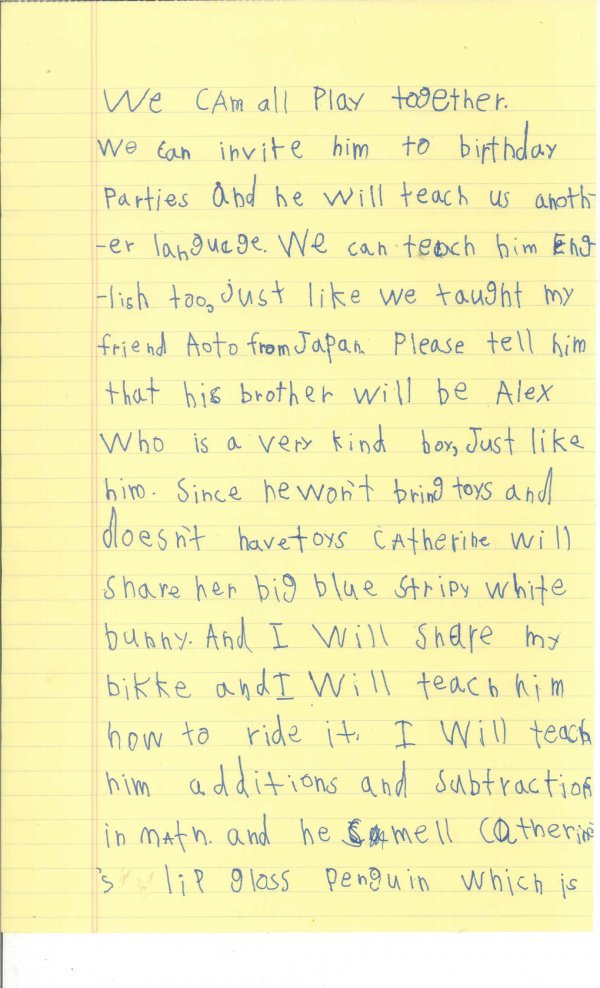 We CAm all Play together.
We can invite him to birthday
Parties And he will teach us anoth-
-er language. We can teach him Eng
-lish too, just like we taught my
friend Aoto from Japan. Please tell him
that his brother will be Alex
Who is a very kind boy, Just like
him. Since he won't bring toys and
doesn't have toys CAtherine will
Share her big blue Stripy white
bunny. And I Will Share my
bikke and I Will teach him
how to ride it. I Will teach
him additions and Subtraction
in mAth. and he mell CAtherine
's lip gloss Penguin Which is